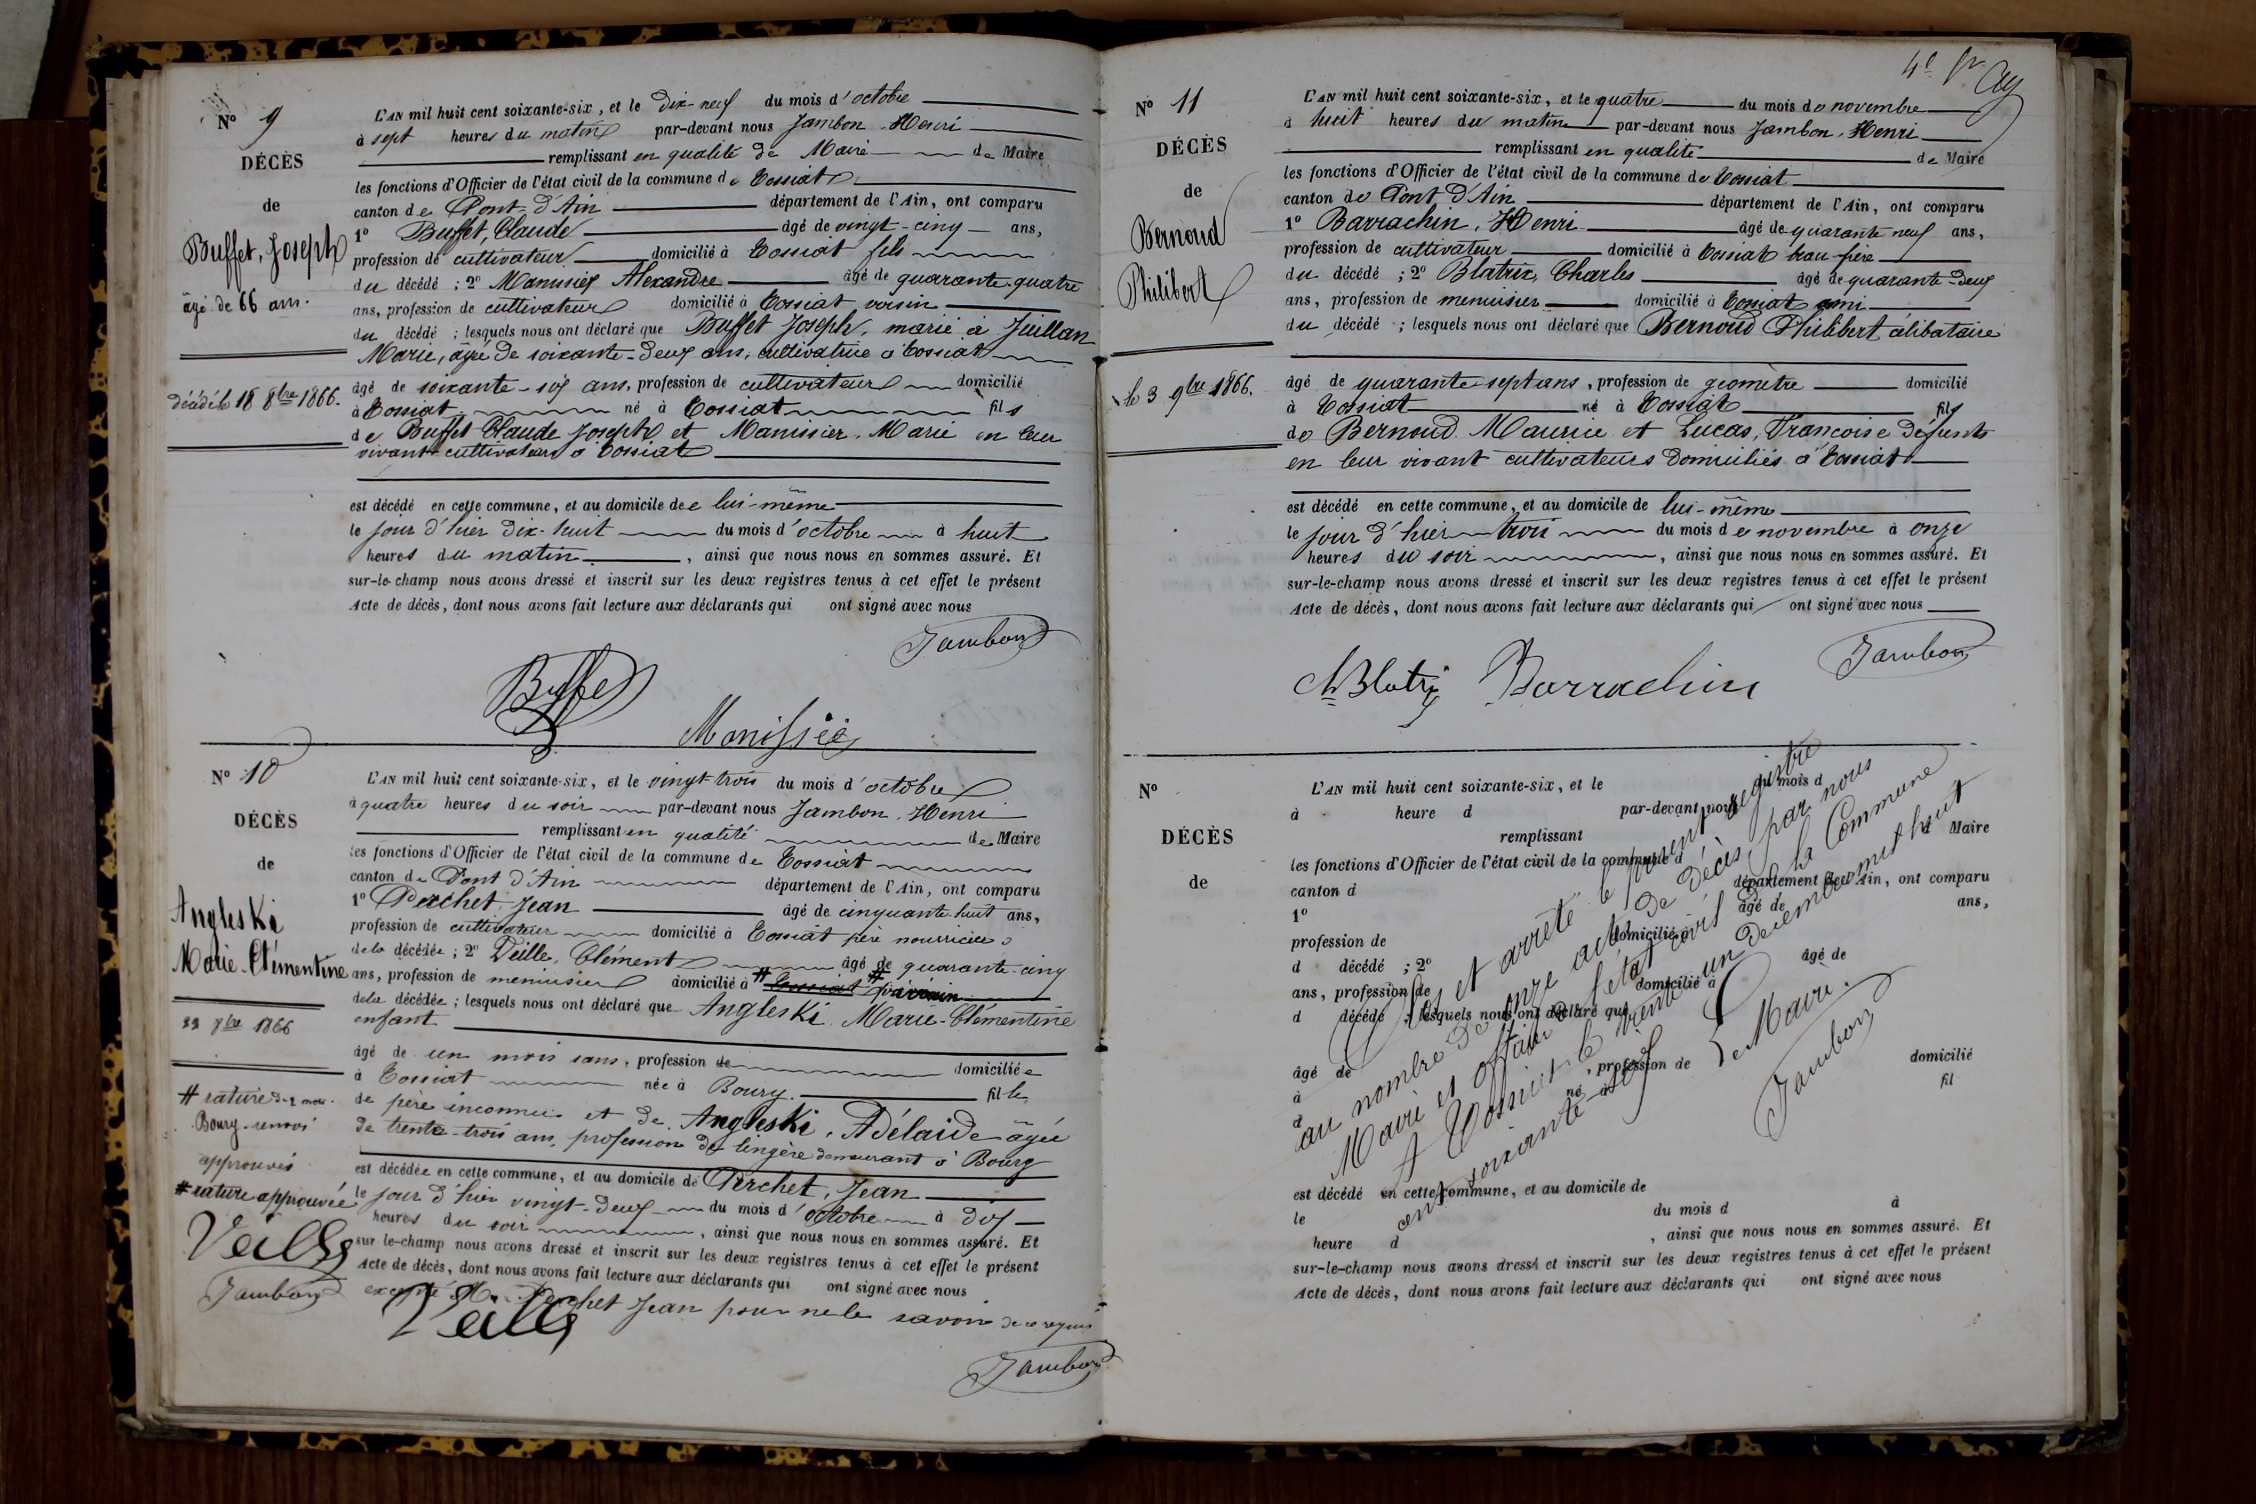 Nº 9
DÉCÈS
de
Buffet, Joseph
âgé de 66 ans.
décédé le 18 8bre 1866.
L'AN mil huit cent soixante-six, et le dix-neuf du mois d'octobre
à sept heures du matin par-devant nous Jambon Henri
remplissant en qualité de Maire de Maire
les fonctions d'Officier de l'état civil de la commune de Tossiat
canton de Pont d'Ain département de l'Ain, ont comparu
1º Buffet, Claude âgé de vingt-cinq ans,
profession de cultivateur domicilié à Tossiat fils
du décédé ; 2º Manisier Alexandre âgé de quarante-quatre
ans, profession de cultivateur domicilié à Tossiat voisin
du décédé ; lesquels nous ont déclaré que Buffet Joseph, marié à Juillan
Marie, âgée de soixante-deux ans, cultivatrice à Tossiat
âgé de soixante-six ans, profession de cultivateur domicilié
à Tossiat né à Tossiat fils
de Buffet Claude Joseph et Manissier Marie en leur
vivant cultivateurs à Tossiat
est décédé en cette commune, et au domicile de lui-même
le jour d'hier dix-huit du mois d'octobre à huit
heures du matin, ainsi que nous nous en sommes assuré. Et
sur-le-champ nous avons dressé et inscrit sur les deux registres tenus à cet effet le présent
Acte de décès, dont nous avons fait lecture aux déclarants qui ont signé avec nous
Jambon
Buffet
Manissier
Nº 10
DÉCÈS
de
Angleski
Marie-Clémentine
22 8bre 1866
# rature de 2 mots
Bourg renvoi
approuvés
# rature approuvée
Veille
Jambon
L'AN mil huit cent soixante-six, et le vingt-trois du mois d'octobre
à quatre heures du soir par-devant nous Jambon, Henri
remplissant en qualité de Maire
les fonctions d'Officier de l'état civil de la commune de Tossiat
canton de Pont d'Ain département de l'Ain, ont comparu
1º Perchet Jean âgé de cinquante-huit ans,
profession de cultivateur domicilié à Tossiat père nourricier
de la décédée ; 2º Veille, Clément âgé de quarante-cinq
ans, profession de menuisier domicilié à # Tossiat # parrain
de la décédée ; lesquels nous ont déclaré que Angleski Marie-Clémentine
enfant
âgé de un mois sans, profession de domiciliée
à Tossiat née à Bourg fille
de père inconnu et de Angleski, Adélaide âgée
de trente-trois ans, profession de lingère demeurant à Bourg
est décédée en cette commune, et au domicile de Perchet, Jean
le jour d'hier vingt-deux du mois d'octobre à dix
heures du soir, ainsi que nous nous en sommes assuré. Et
sur le-champ nous avons dressé et inscrit sur les deux registres tenus à cet effet le présent
Acte de décès, dont nous avons fait lecture aux déclarants qui ont signé avec nous
excepté Perchet Jean pour ne le savoir de ce requis
Veille
Jambon
4e
Nº 11
DÉCÈS
de
Bernoud
Philibert
le 3 9bre 1866.
L'AN mil huit cent soixante-six, et le quatre du mois de novembre
à huit heures du matin par-devant nous Jambon, Henri
remplissant en qualité de Maire
les fonctions d'Officier de l'état civil de la commune de Tossiat
canton de Pont d'Ain département de l'Ain, ont comparu
1º Barrachin, Henri âgé de quarante neuf ans,
profession de cultivateur domicilié à Tossiat beau-frère
du décédé ; 2º Blatrix, Charles âgé de quarante-deux
ans, profession de menuisier domicilié à Tossiat ami
du décédé ; lesquels nous ont déclaré que Bernoud Philibert célibataire
âgé de quarante-sept ans, profession de géomètre domicilié
à Tossiat né à Tossiat fils
de Bernoud Maurice et Lucas, Françoise défunts
en leur vivant cultivateurs domiciliés à Tossiat
est décédé en cette commune, et au domicile de lui-même
le jour d'hier trois du mois de novembre à onze
heures du soir, ainsi que nous nous en sommes assuré. Et
sur-le-champ nous avons dressé et inscrit sur les deux registres tenus à cet effet le présent
Acte de décès, dont nous avons fait lecture aux déclarants qui ont signé avec nous
Jambon
Ch Blatrix Barrachin
Nº
DÉCÈS
de
L'AN mil huit cent soixante-six, et le du mois d
à heure d par-devant nous
remplissant d Maire
les fonctions d'Officier de l'état civil de la commune d
canton d département de l'Ain, ont comparu
1º âgé de ans,
profession de domicilié à
d décédé ; 2º âgé de
ans, profession de domicilié à
d décédé ; lesquels nous ont déclaré que
âgé de , profession de domicilié
à né à fil
d
est décédé en cette commune, et au domicile de
le du mois d à
heure d , ainsi que nous nous en sommes assuré. Et
sur-le-champ nous avons dressé et inscrit sur les deux registres tenus à cet effet le présent
Acte de décès, dont nous avons fait lecture aux déclarants qui ont signé avec nous
Clos et arrêté le présent registre
au nombre de onze actes de décès par nous
Maire et officier de l'état civil de la Commune
A Tossiat le trente un décembre mil huit
cent soixante-six
Le Maire.
Jambon